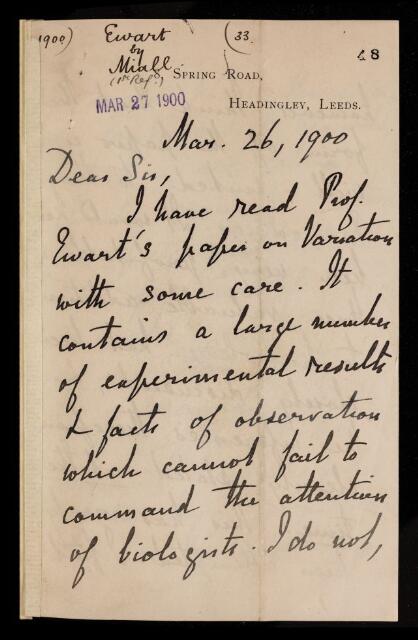 1900)
(33.
48
Ewart
by
Miall
(1st Ref.)
SPRING ROAD,
MAR 27 1900
HEADINGLEY, LEEDS.
Mar. 26, 1900
Dear Sir,
I have read Prof.
Ewart's paper on Variation
with some care. It
contains a large number
of experimental results
& facts of observation
which cannot fail to
command the attention
of biologists. I do not,